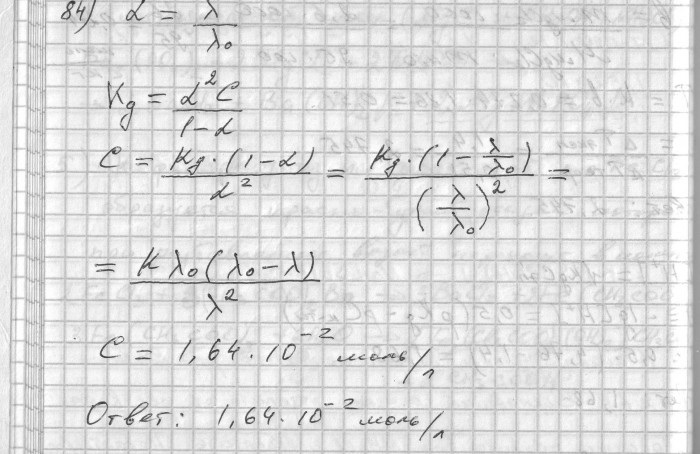 84) α = λ / λ₀
K_g = α²C / (1-α)
C = K_g·(1-α) / α² = K_g·(1 - λ/λ₀) / (λ/λ₀)² =
= K λ₀(λ₀-λ) / λ²
C = 1,64·10⁻² моль/л
Ответ: 1,64·10⁻² моль/л